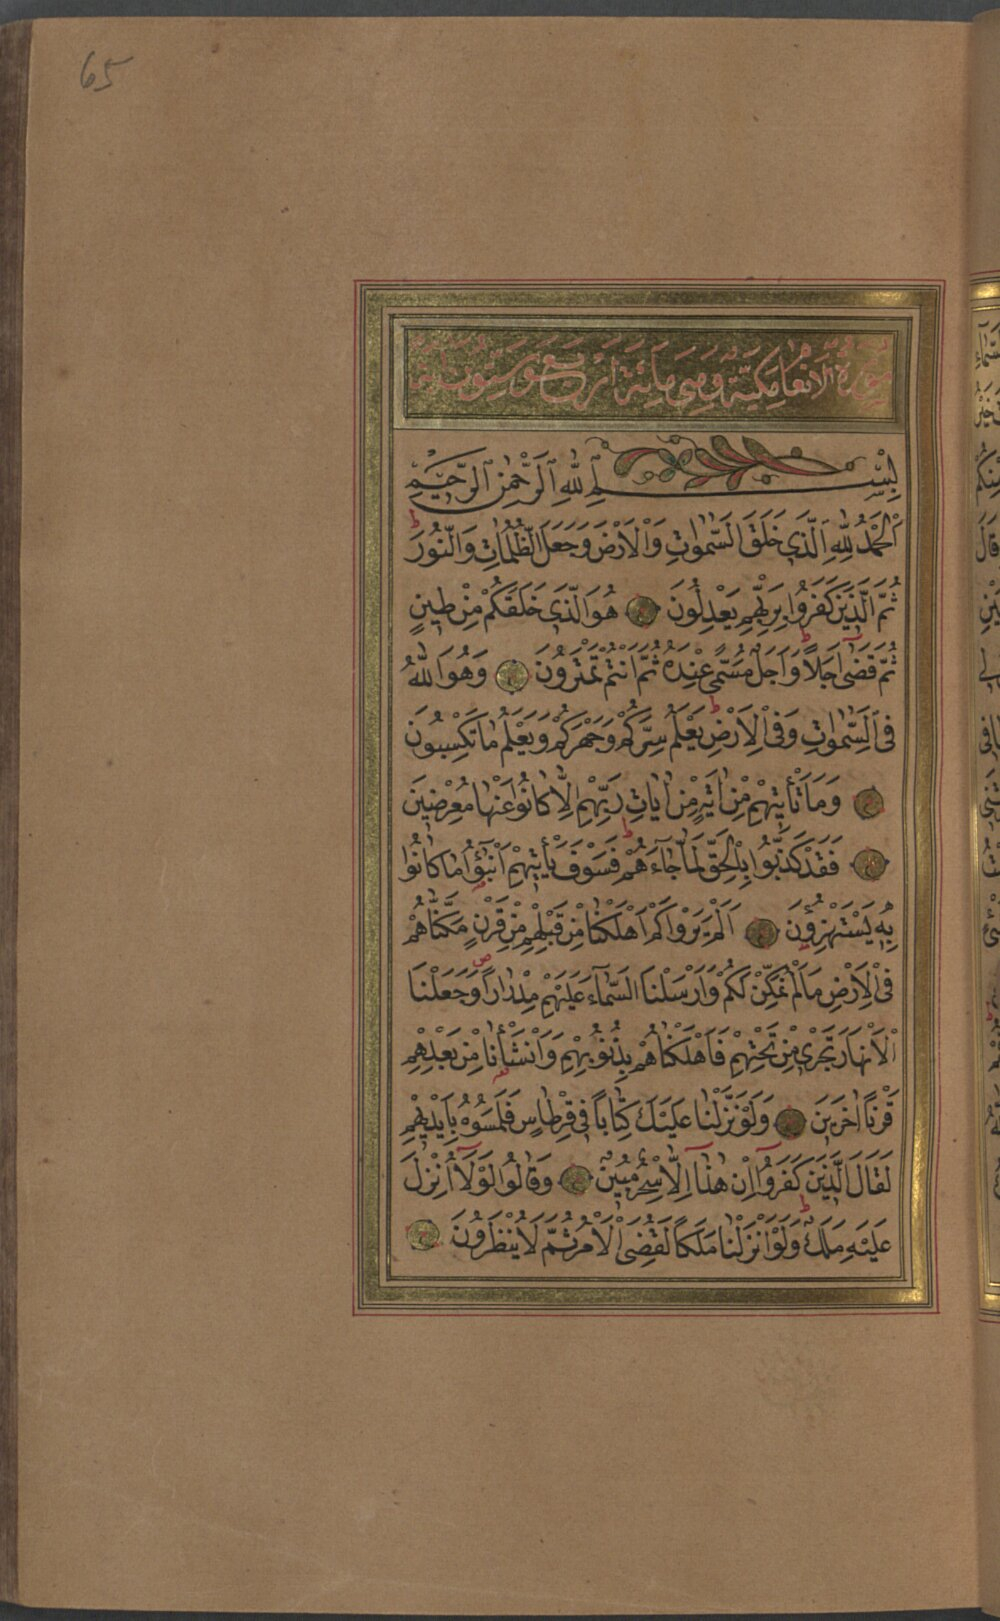 65
سُورَةُ الْاَنْعَامِ مَكِّيَّةٌ وَهِيَ مِائَةٌ وَاَرْبَعٌ وَسِتُّونَ اٰيَةً
بِسْمِ اللّٰهِ الرَّحْمٰنِ الرَّحِيمِ
اَلْحَمْدُ لِلّٰهِ الَّذِي خَلَقَ السَّمٰوَاتِ وَالْاَرْضَ وَجَعَلَ الظُّلُمَاتِ وَالنُّورَ ط
ثُمَّ الَّذِينَ كَفَرُوا بِرَبِّهِمْ يَعْدِلُونَ هُوَ الَّذِي خَلَقَكُمْ مِنْ طِينٍ
ثُمَّ قَضٰى اَجَلًا ط وَاَجَلٌ مُسَمًّى عِنْدَهُ ثُمَّ اَنْتُمْ تَمْتَرُونَ وَهُوَ اللّٰهُ
فِي السَّمٰوَاتِ وَفِي الْاَرْضِ ط يَعْلَمُ سِرَّكُمْ وَجَهْرَكُمْ وَيَعْلَمُ مَا تَكْسِبُونَ
وَمَا تَأْتِيهِمْ مِنْ اٰيَةٍ مِنْ اٰيَاتِ رَبِّهِمْ اِلَّا كَانُوا عَنْهَا مُعْرِضِينَ
فَقَدْ كَذَّبُوا بِالْحَقِّ لَمَّا جَاءَهُمْ ط فَسَوْفَ يَأْتِيهِمْ اَنْبٰؤُا مَا كَانُوا
بِهِ يَسْتَهْزِؤُنَ اَلَمْ يَرَوْا كَمْ اَهْلَكْنَا مِنْ قَبْلِهِمْ مِنْ قَرْنٍ مَكَّنَّاهُمْ
فِي الْاَرْضِ مَا لَمْ نُمَكِّنْ لَكُمْ وَاَرْسَلْنَا السَّمَاءَ عَلَيْهِمْ مِدْرَارًا ص وَجَعَلْنَا
الْاَنْهَارَ تَجْرِي مِنْ تَحْتِهِمْ فَاَهْلَكْنَاهُمْ بِذُنُوبِهِمْ وَاَنْشَأْنَا مِنْ بَعْدِهِمْ
قَرْنًا اٰخَرِينَ وَلَوْ نَزَّلْنَا عَلَيْكَ كِتَابًا فِي قِرْطَاسٍ فَلَمَسُوهُ بِاَيْدِيهِمْ
لَقَالَ الَّذِينَ كَفَرُوا اِنْ هٰذَا اِلَّا سِحْرٌ مُبِينٌ وَقَالُوا لَوْلَا اُنْزِلَ
عَلَيْهِ مَلَكٌ ط وَلَوْ اَنْزَلْنَا مَلَكًا لَقُضِيَ الْاَمْرُ ثُمَّ لَا يُنْظَرُونَ